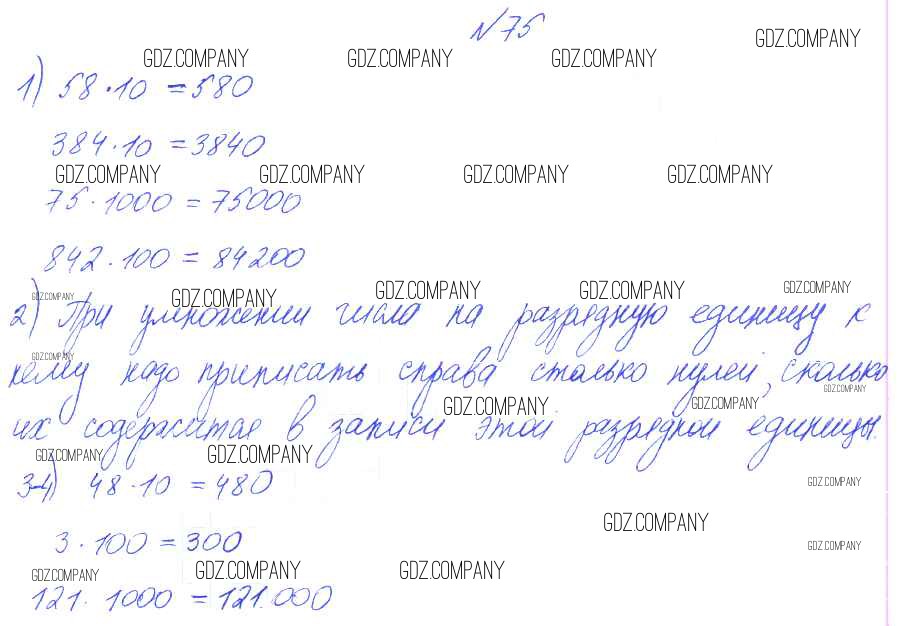 №75
GDZ.COMPANY
GDZ.COMPANY GDZ.COMPANY GDZ.COMPANY
1) 58·10 = 580
384·10 = 3840
GDZ.COMPANY GDZ.COMPANY GDZ.COMPANY GDZ.COMPANY
75·1000 = 75000
842·100 = 84200
GDZ.COMPANY GDZ.COMPANY GDZ.COMPANY GDZ.COMPANY GDZ.COMPANY
2) При умножении числа на разрядную единицу к
GDZ.COMPANY
нему надо приписать справа столько нулей, сколько
GDZ.COMPANY
GDZ.COMPANY GDZ.COMPANY
их содержится в записи этой разрядной единицы.
GDZ.COMPANY GDZ.COMPANY
3-4) 48·10 = 480
GDZ.COMPANY
GDZ.COMPANY
3·100 = 300
GDZ.COMPANY
GDZ.COMPANY GDZ.COMPANY GDZ.COMPANY
121·1000 = 121.000